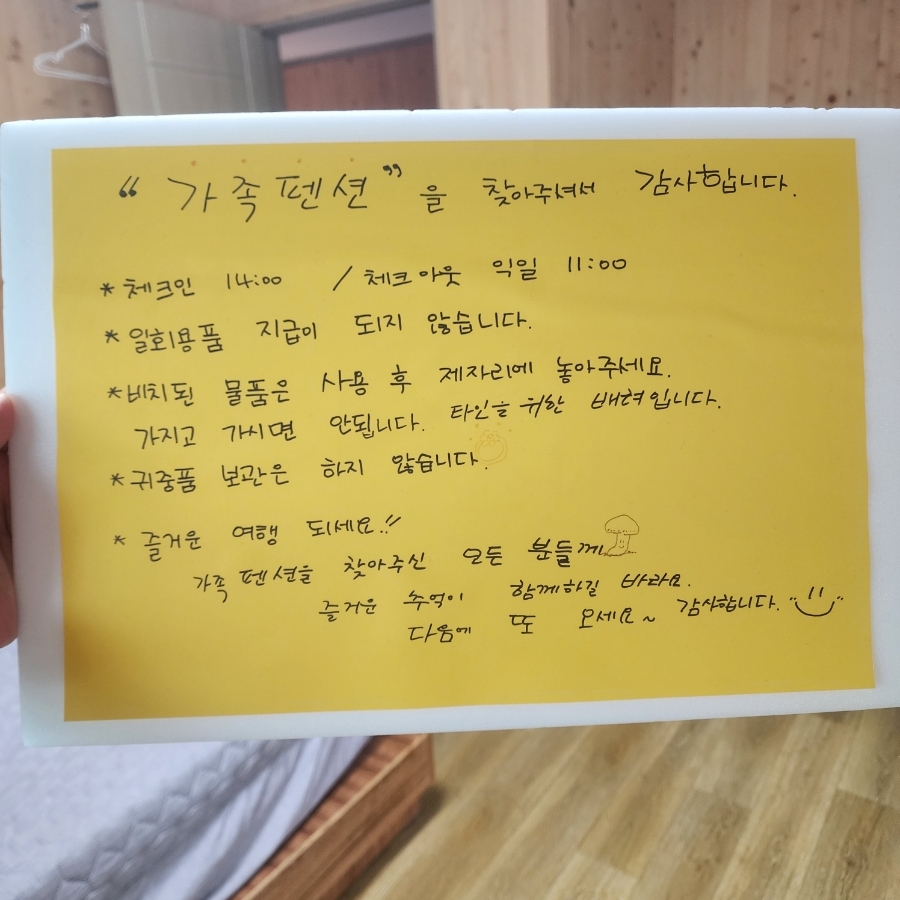 “가족펜션”을 찾아주셔서 감사합니다.
*체크인 14:00 / 체크아웃 익일 11:00
*일회용품 지급이 되지 않습니다.
*비치된 물품은 사용 후 제자리에 놓아주세요.
가지고 가시면 안됩니다. 타인을 위한 배려입니다.
*귀중품 보관은 하지 않습니다.
* 즐거운 여행 되세요!!
가족펜션을 찾아주신 모든 분들께
즐거운 추억이 함께하길 바라요.
다음에 또 오세요~ 감사합니다.